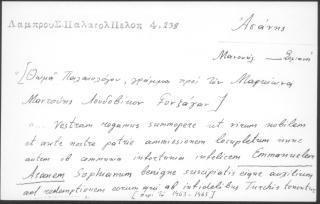 Λαμπρου Σ. Παλαιολ Πελοπ 4, 238
Ἀσάνης
Μανουήλ — Σοφιανός
[Θωμᾶ Παλαιολόγου, γράμμα πρός τόν Μαρκίωνα
Μαντούης Λουδοβίκον Γονζάγαν]
"... Vestram rogamus summopere ut virum nobilem
et ante nostre patrie ammissionem locupletem nunc
autem ob communia infortunia infelicem Emmanuelem
Asanem Sophianum benigne suscipiatis eique auxilium
ad redemptionem eorum qui ab infidelibus Turchis tenentur
[1463-1465]